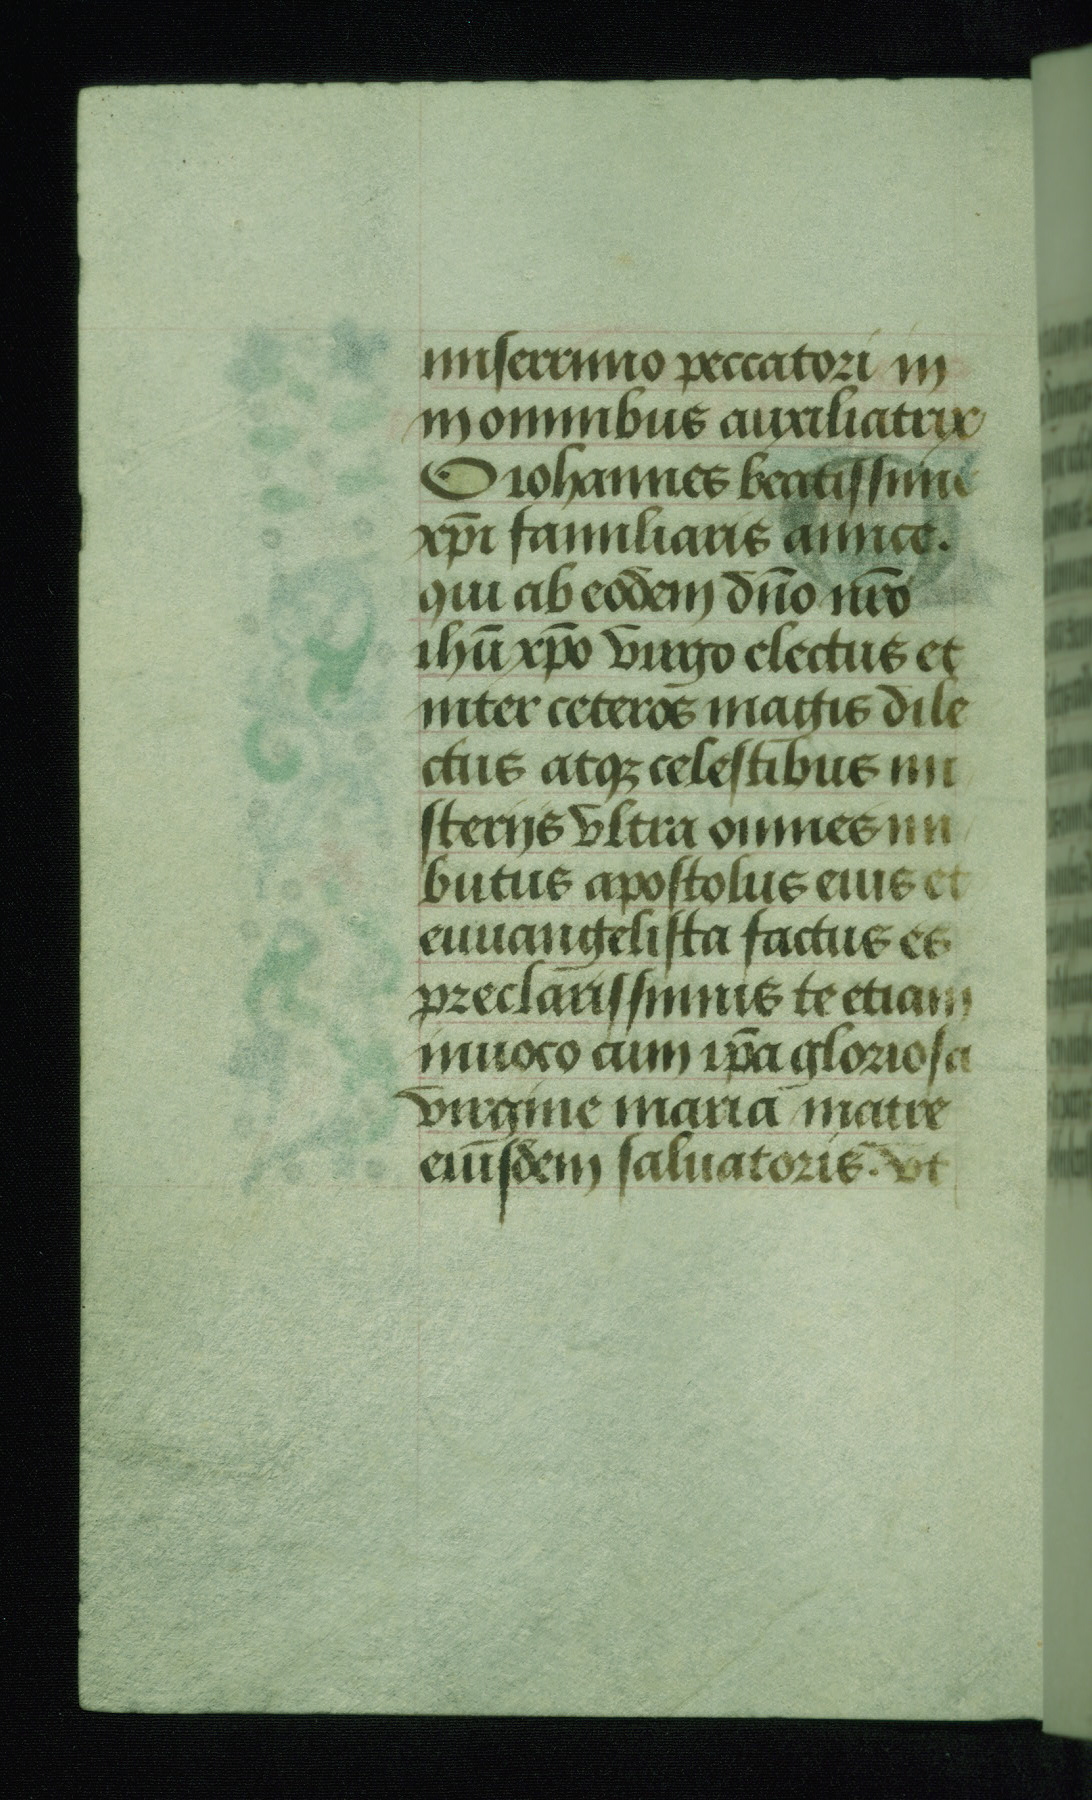 miserrimo peccatori in
in omnibus auxiliatrix
O iohannes beatissime
xp̄i familiaris amice.
qui ab eodem dn̄o nr̄o
ihū xp̄o virgo electus et
inter ceteros magis dile
ctus atqꝫ celestibus mi
sterijs vltra omnes im
butus apostolus eius et
euuangelista factus es
preclarissimus te etiam
inuoco cum ip̄a gloriosa
virgine maria matre
eiusdem saluatoris. vt